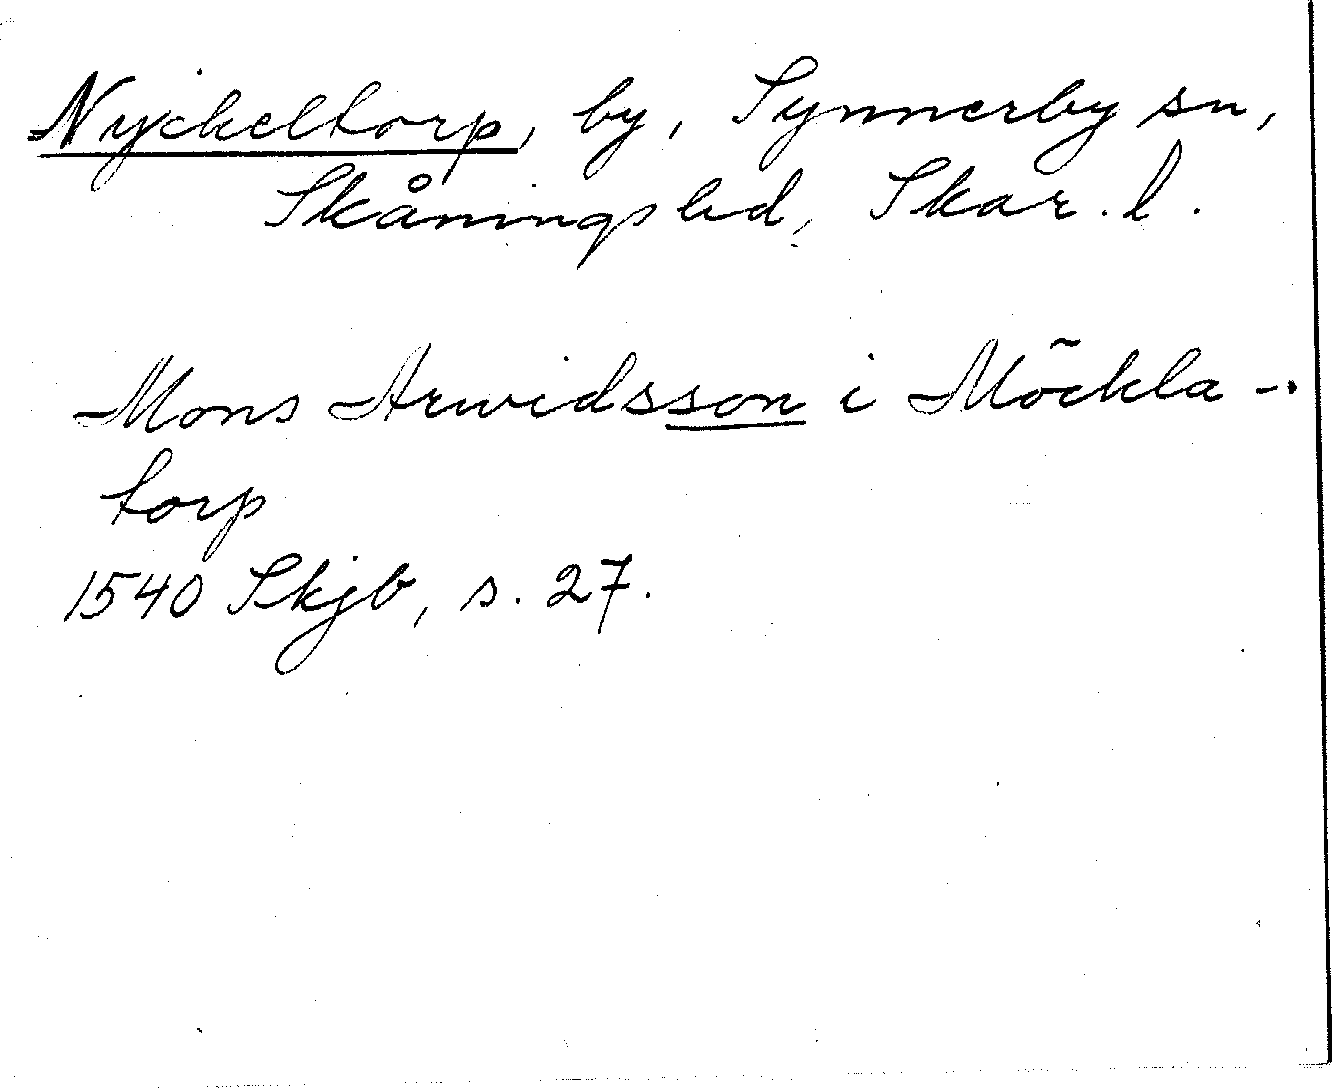 Nyckeltorp, by, Synnerby sn,
Skånings hd, Skar. l.
Mons Arwidsson i Möckla-
torp
1540 Skjb, s. 27.